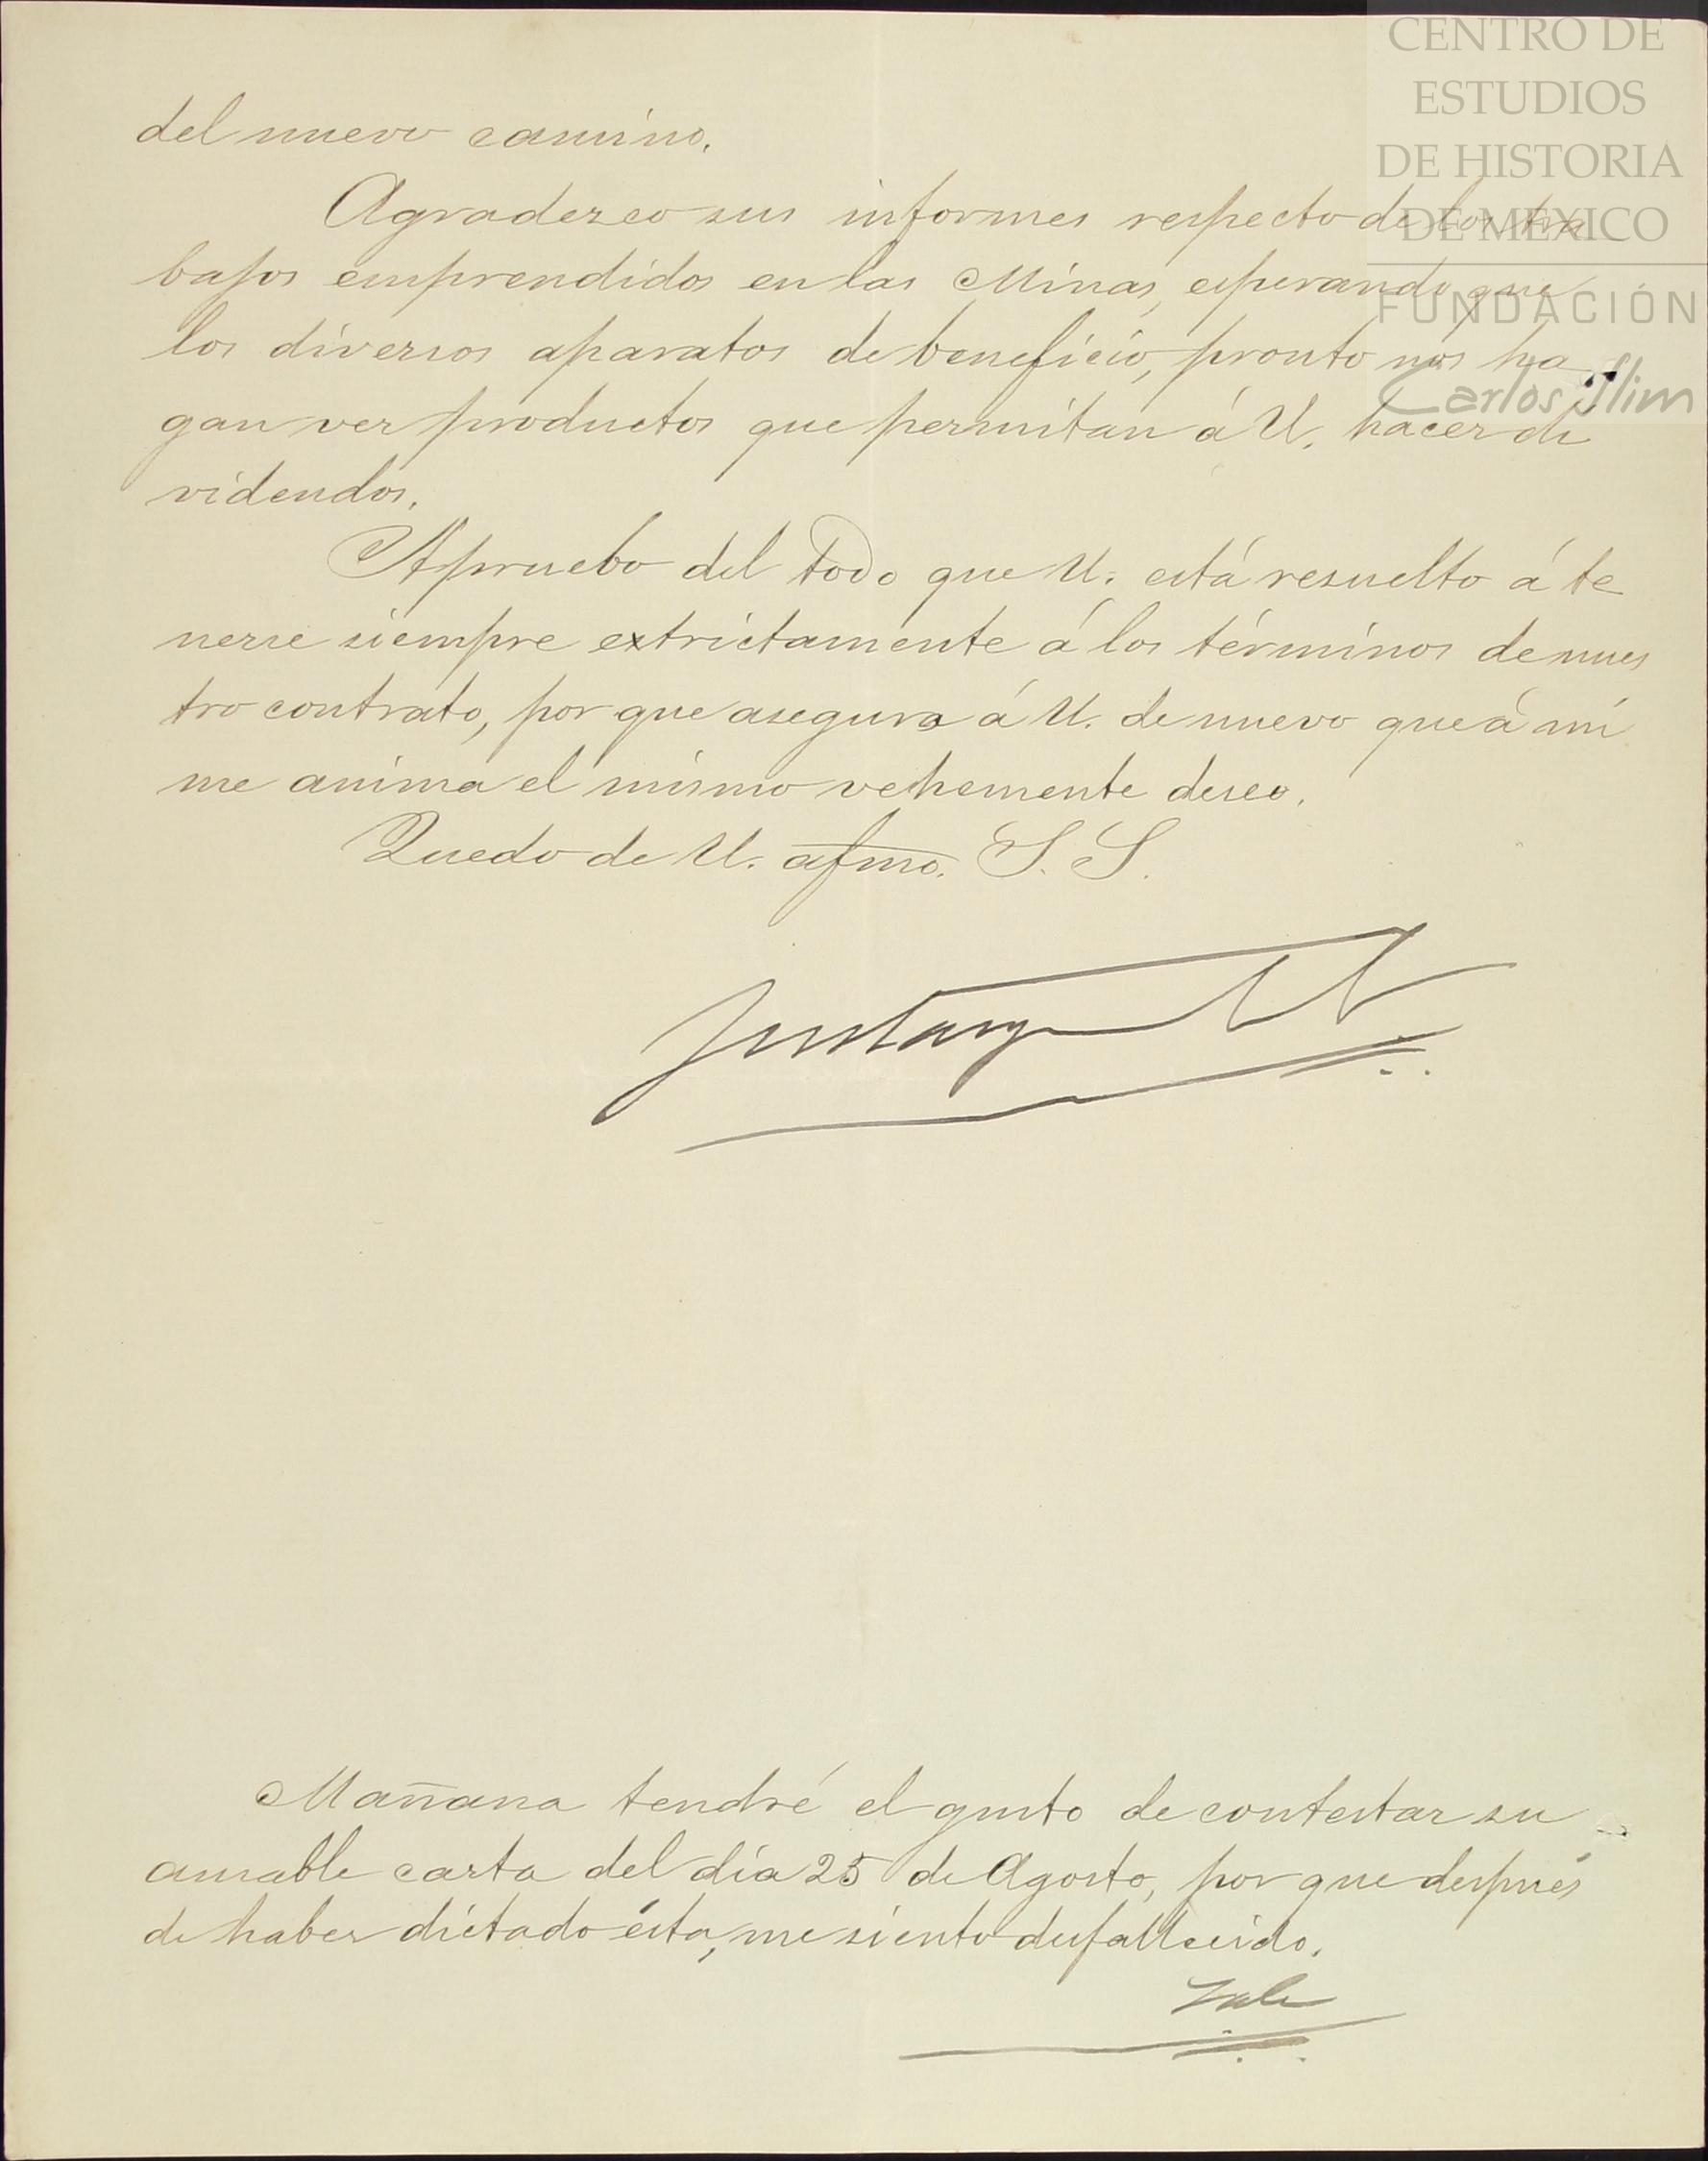 CENTRO DE
ESTUDIOS
DE HISTORIA
DE MÉXICO
FUNDACIÓN
Carlos Slim
del nuevo camino.
Agradezco sus informes respecto de los tra
bajos emprendidos en las Minas, esperando que
los diversos aparatos de beneficio, pronto nos ha
gan ver productos que permitan á U. hacer di
videndos.
Apruebo del todo que U. está resuelto á te
nerse siempre extrictamente á los términos de nues
tro contrato, por que aseguro á U. de nuevo que á mi
me anima el mismo vehemente deseo.
Quedo de U. afmo. S. S.
Mañana tendré el gusto de contestar su
amable carta del día 25 de Agosto, por que después
de haber dictado ésta, me siento desfallecido.
Vale